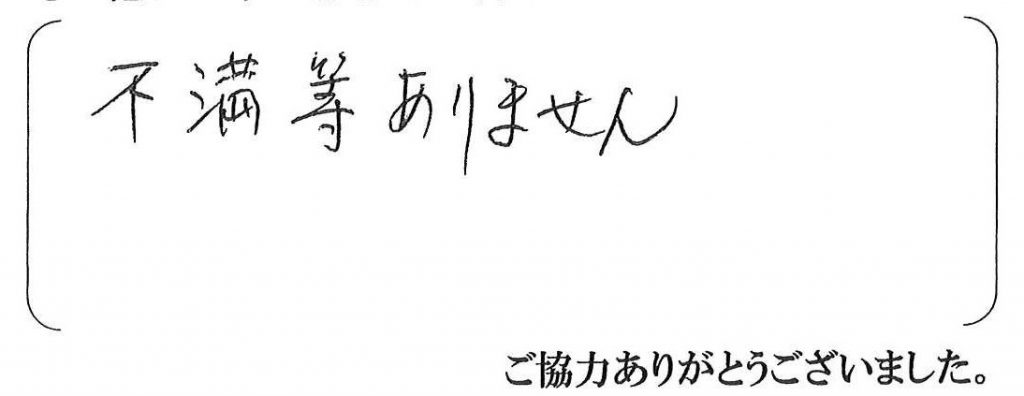 不満等ありません
ご協力ありがとうございました。